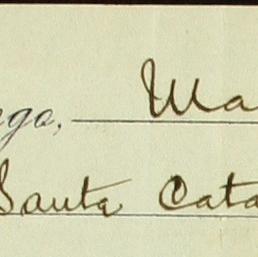 ngo, Ma
Santa Cata